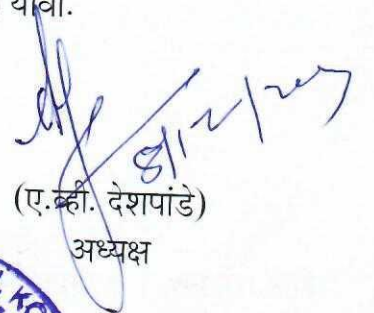 यावी.
(ए.व्ही. देशपांडे)
अध्यक्ष